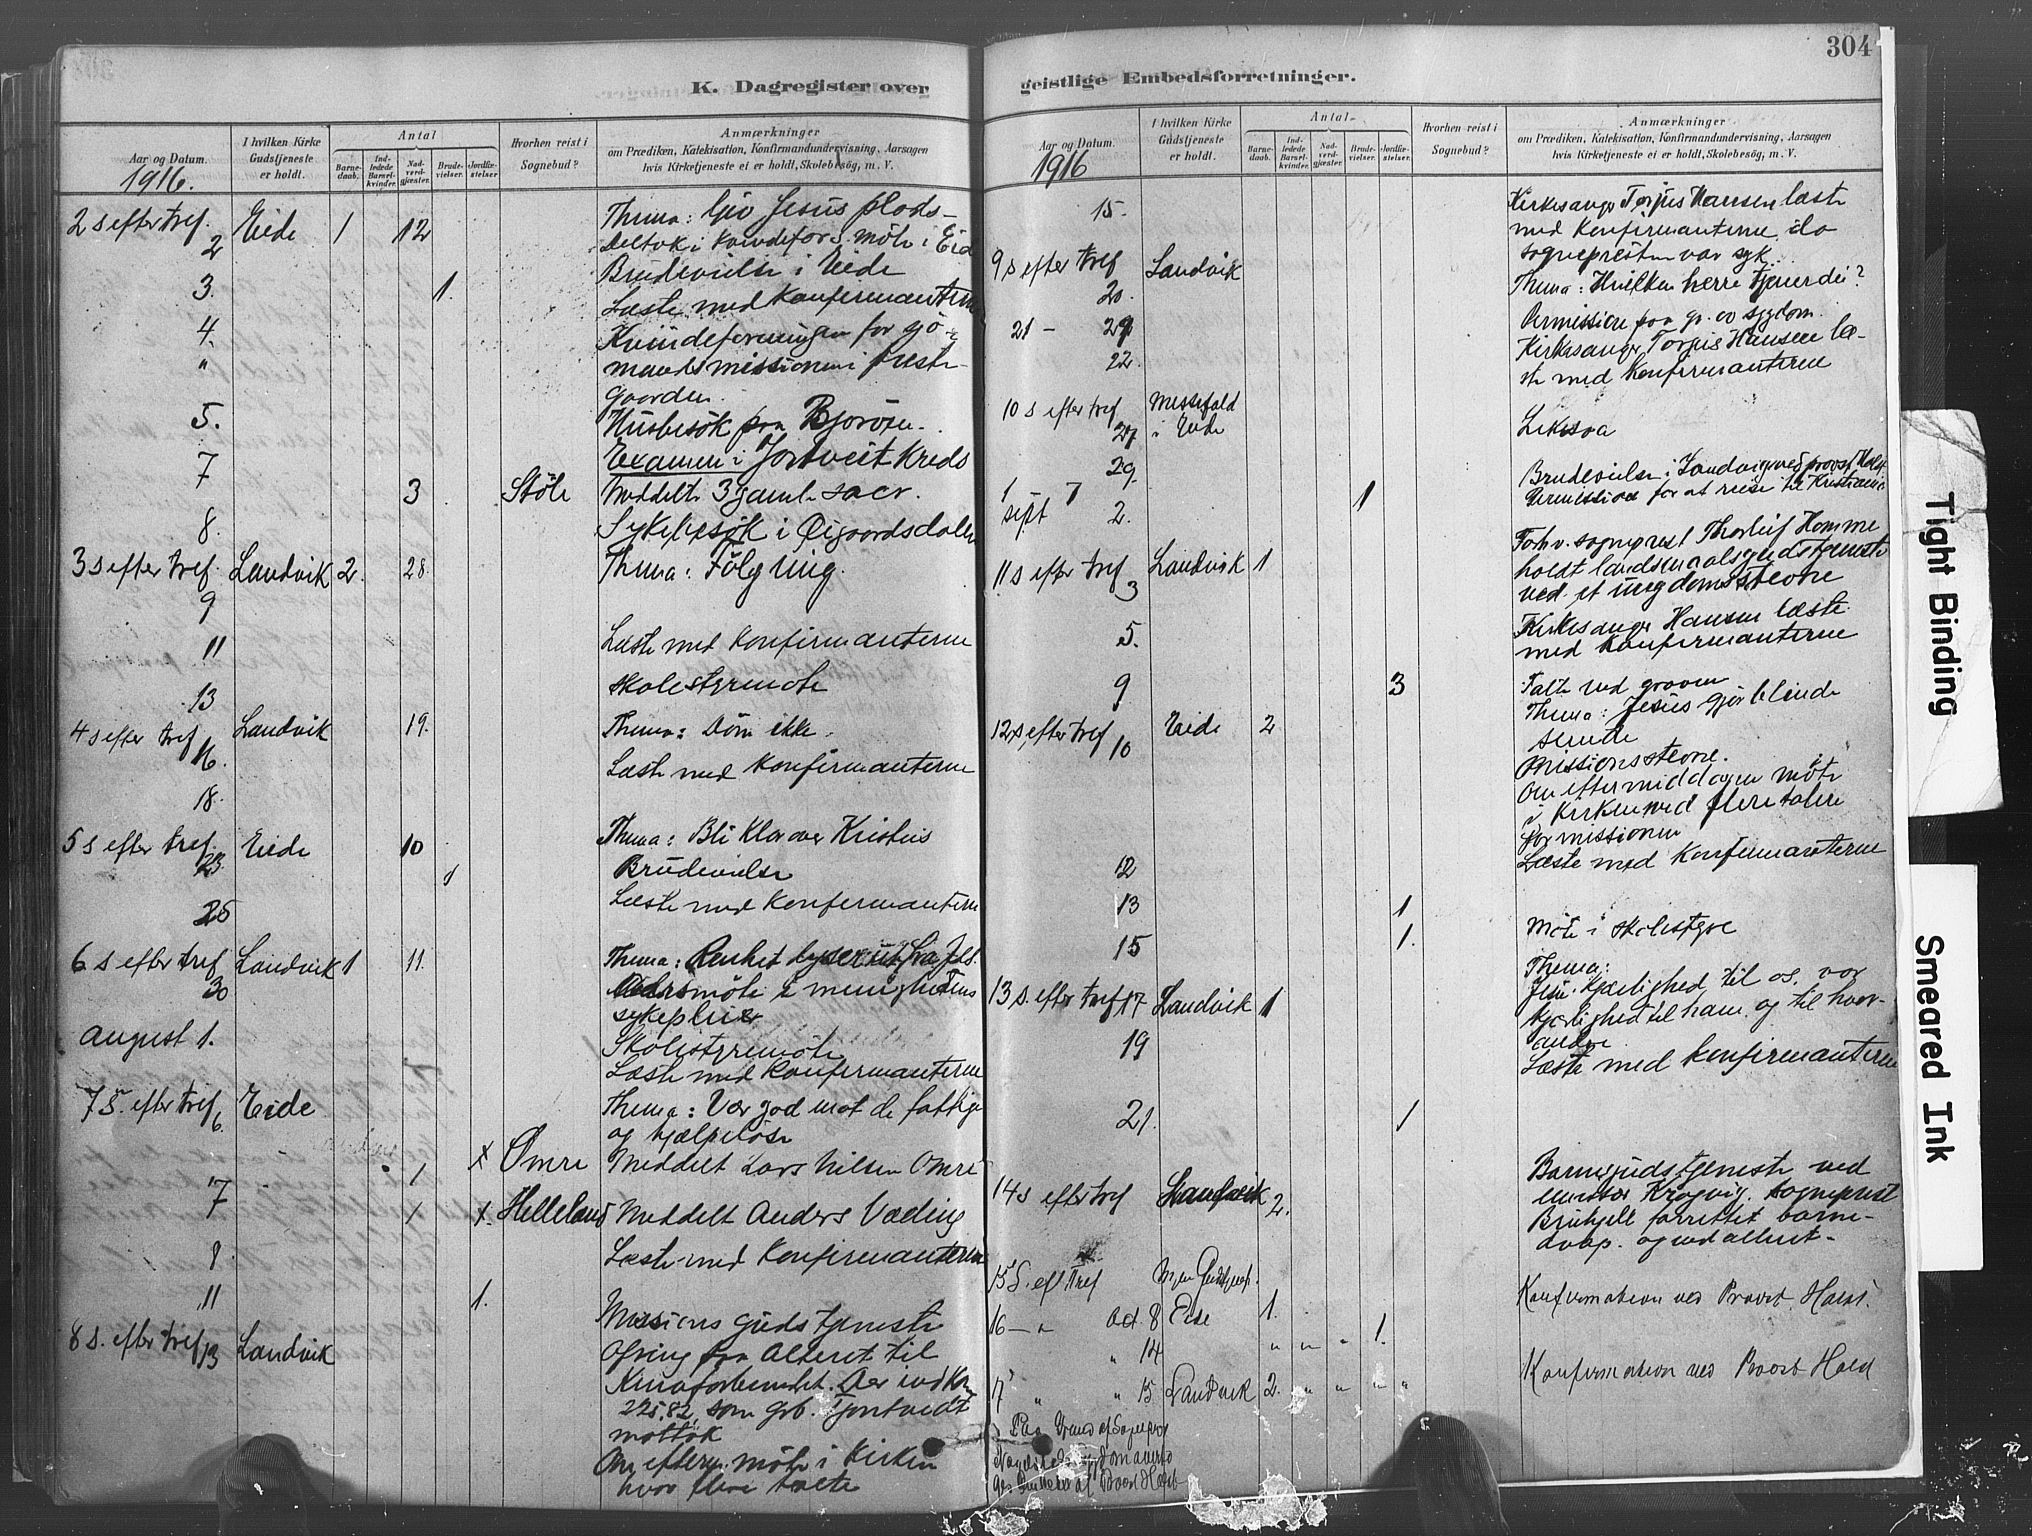 304
K. Dagregister over
geistlige Embedsforretninger.
Aar og Datum.
1916.
I hvilken Kirke
Gudstjeneste
er holdt.
Antal
Barne-
daab.
Ind-
ledede
Barsel-
kvinder.
Nad-
verd-
gjæster.
Brude-
vielser.
Jordfæ-
stelser
Hvorhen reist i
Sognebud?
Anmærkninger
om Prædiken, Katekisation, Konfirmandundervisning, Aarsagen
hvis Kirketjeneste ei er holdt, Skolebesög, m. V.
2 s efter tref. Eide 1 12 Thema: Giv Jesus plads-
2 Deltok i møte i Eid
Brudevielse i Eide
3. 1. Læste med konfirmanterne
4. Kvindeforeningen for sjö-
" mandsmissionen i preste-
gaarden.
5. Husbesök paa
7 Examen i Jortveit Kreds
3 Støle Meddelt 3 gamle sacr.
8. Sykebesök i
3 s efter tref. Landvik 2. 28. Thema: Følg mig.
9
11 Læste med konfirmanterne
13 Skolestyremöte
4 s efter tref Landvik 19. Thema: Döm ikke.
16. Læste med konfirmanterne
18.
5 s efter tref. Eide 10 Thema: Bli klar over Kristus
23 1 Brudevielse
25 Læste med konfirmanterne
6 s efter tref Landvik 1 11. Thema: Renhet lyser ut fra Jes.
30 Aarsmöte i menighetens
sykepleie
August 1. Skolestyremöte
Læste med konfirmanterne
7 S. efter tref 6. Eide Thema: Vær god mot de fattige
og hjælpelöse
1 x Omre Meddelt Lars Nilsen Omre
7 1 x Helleland Meddelt Anders Væding
8 Læste med konfirmanterne
11 1.
8 s. efter tref 13 Landvik Missions gudstjeneste
Ofring paa Alteret til
Kinaforbundet. Der indkom
225,82, som grb. Tjortvedt
mottok
Om efterm. möte i kirken
hvor flere talte
Aar og Datum.
1916
I hvilken Kirke
Gudstjeneste
er holdt.
Antal
Barne-
daab.
Ind-
ledede
Barsel-
kvinder.
Nad-
verd-
gjæster.
Brude-
vielser.
Jordfæ-
stelser.
Hvorhen reist i
Sognebud?
Anmærkninger
om Prædiken, Katekisation, Konfirmandundervisning, Aarsagen
hvis Kirketjeneste ei er holdt, Skolebesög, m. V.
15. Kirkesanger Torjus Hansen læste
med konfirmanterne, da
sognepresten var syk.
9 s efter tref Landvik Thema: Hvilken herre tjener du?
20.
21 - 29 Permission paa gr. av sygdom.
22. Kirkesanger Torjus Hansen læ-
ste med konfirmanterne
10 s efter tref Messefald
27 i Eide
29.
1 Brudevielse i Landvig ved provst Holst.
Permission for at reise til Kristiania
sept 2.
11 s efter tref Landvik 1 Forhv. sogneprest Thorleif Homme
3 holdt landsmaalsgudstjeneste
ved et ungdomsstevne
5. Kirkesanger Hansen læste
med konfirmanterne
9 3 Talte ved graven
12 s, efter tref Eide 2 Thema: Jesus gjør blinde
10 seende
Missionsstevne.
Om eftermiddagen möte
i kirken med flere talere
for missionen
12 Læste med konfirmanterne
13 1
15 1. Möte i skolestyre
Thema:
13 s. efter tref 17 Landvik 1 Jesu kjærlighed til os, vor
kjærlighed til ham og til hver-
andre
19 Læste med konfirmanterne
21. 1
14 s efter tref Landvik 2. Barnegudstjeneste ved
emissær Krogvig. Sogneprest
forrettet barne-
daap.
15 S. eft Tref Ingen Gudstjnst.
16 - " Oct 8 Eide 1. Konfirmation ved Provst Holst.
" 14 " " " 1.
17 " " 15 Landvik 2. " " " " Konfirmation ved Provst Holst
Paa Grund af
af Provst Holst
Tight Binding
Smeared Ink